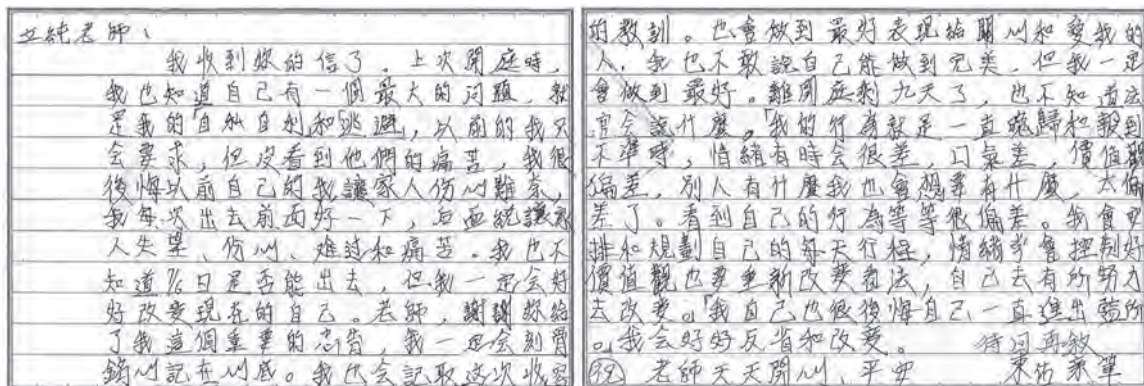 芷純老師:
我收到妳的信了。上次開庭時,
我也知道自己有一個最大的問題,就
是我的「自私自利和逃避,以前的我只
会要求,但沒看到他們的痛苦,我很
後悔以前自己的我讓家人伤心難奈,
我每次出去前面好一下,后面就讓家
人失望、伤心、难过和痛苦。我也不
知道 日是否能出去,但我一定会好
好改变現在的自己。老師,謝謝妳給
了我這個重要的忠告,我一定会刻骨
銘心記在心底。我也会記取這次收容
的教訓。也會做到最好表現給關心和愛我的
人,我也不敢說自己能做到完美,但我一定
會做到最好。離開庭剩九天了,也不知道庭
官会說什麼。「我的行為就是一直晚歸和報到
不準時,情緒有時会很差,口氣差,價值觀
偏差,別人有什麼我也會想要有什麼,太偏
差了。看到自己的行為等等很偏差。我會安
排和規劃自己的每天行程,情緒 會控制好
價值觀也要重新改变看法,自己去有所努力
去改变。「我自己也很後悔自己一直進出 的
。我会好好反省和改变。 待回再敘
老師天天開心、平安 東佑 筆